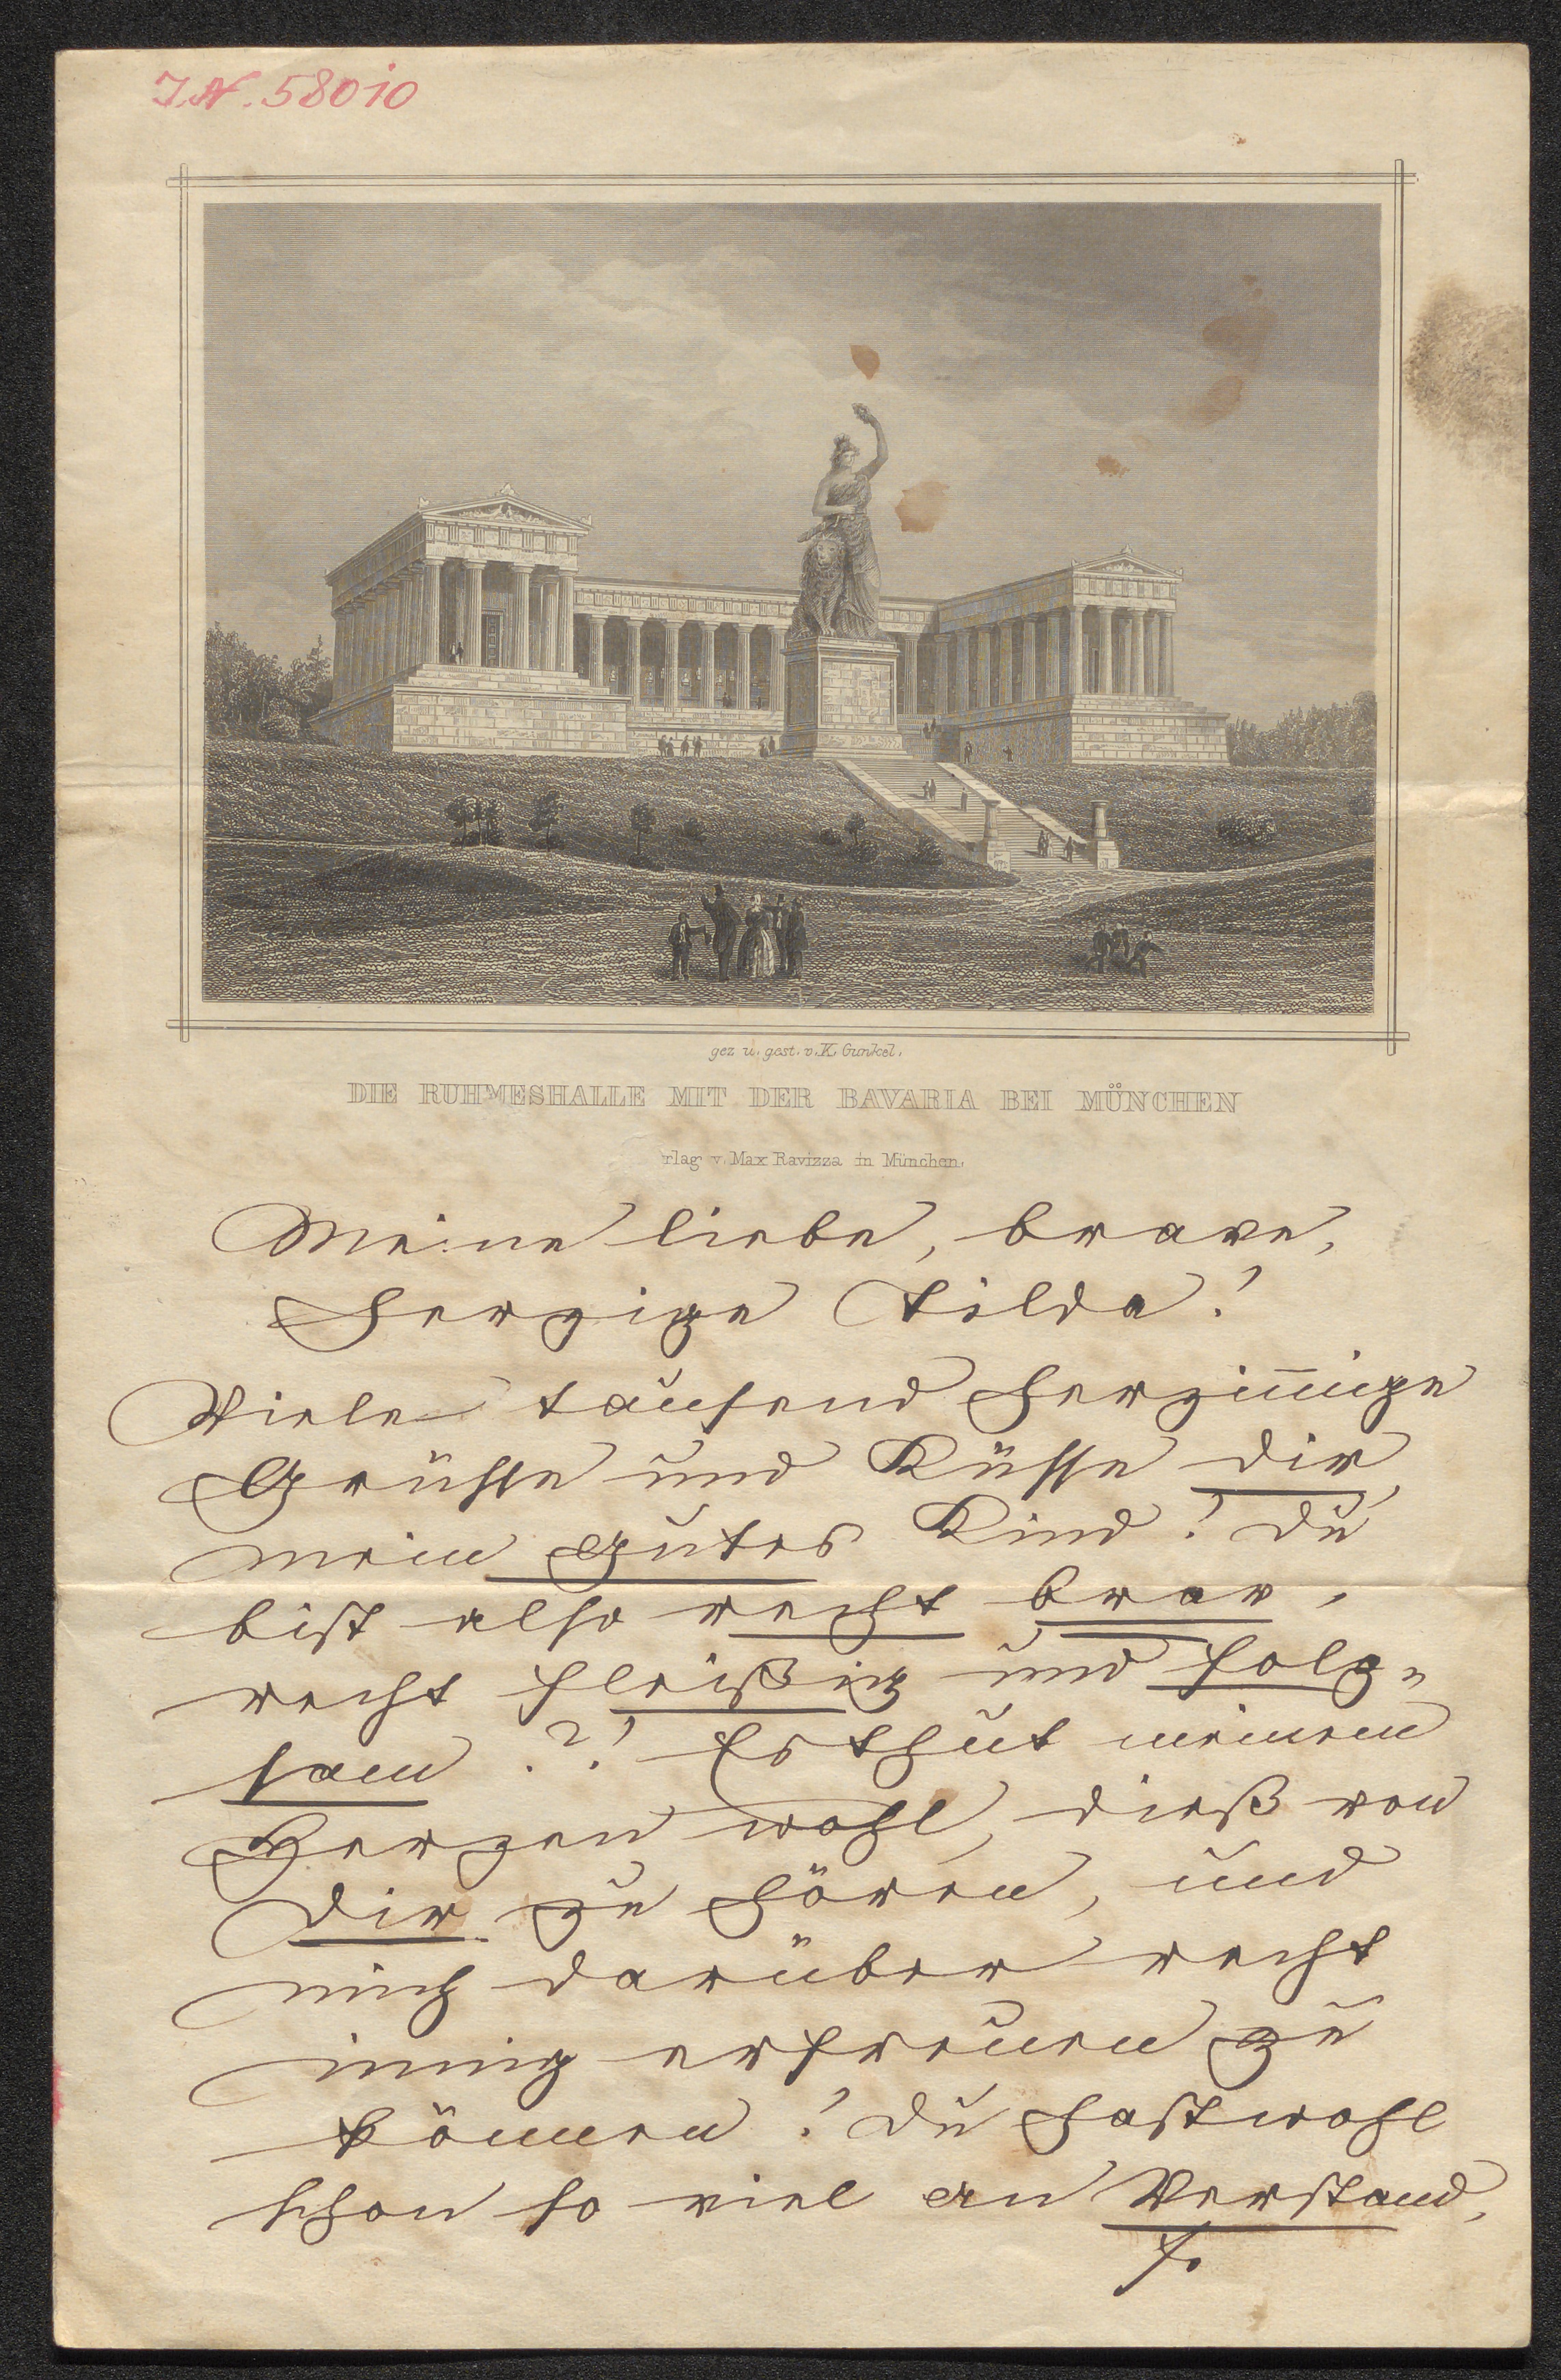 I.N. 58010
gez. u. gest. v. K. Gunkel.
DIE RUHMESHALLE MIT DER BAVARIA BEI MÜNCHEN
rlag v. Max Ravizza in München.
Meine liebe, brave,
herzige Tilda!
Viele tausend herzinnige
Grüsse und Küsse dir
mein gutes Kind! Du
bist also recht brav,
recht fleißig und folg-
sam?! Es thut meinem
Herzen wohl, dieß von
Dir zu hören, und
mich darüber recht
innig erfreuen zu
können! Du hast wohl
schon so viel an Verstand,